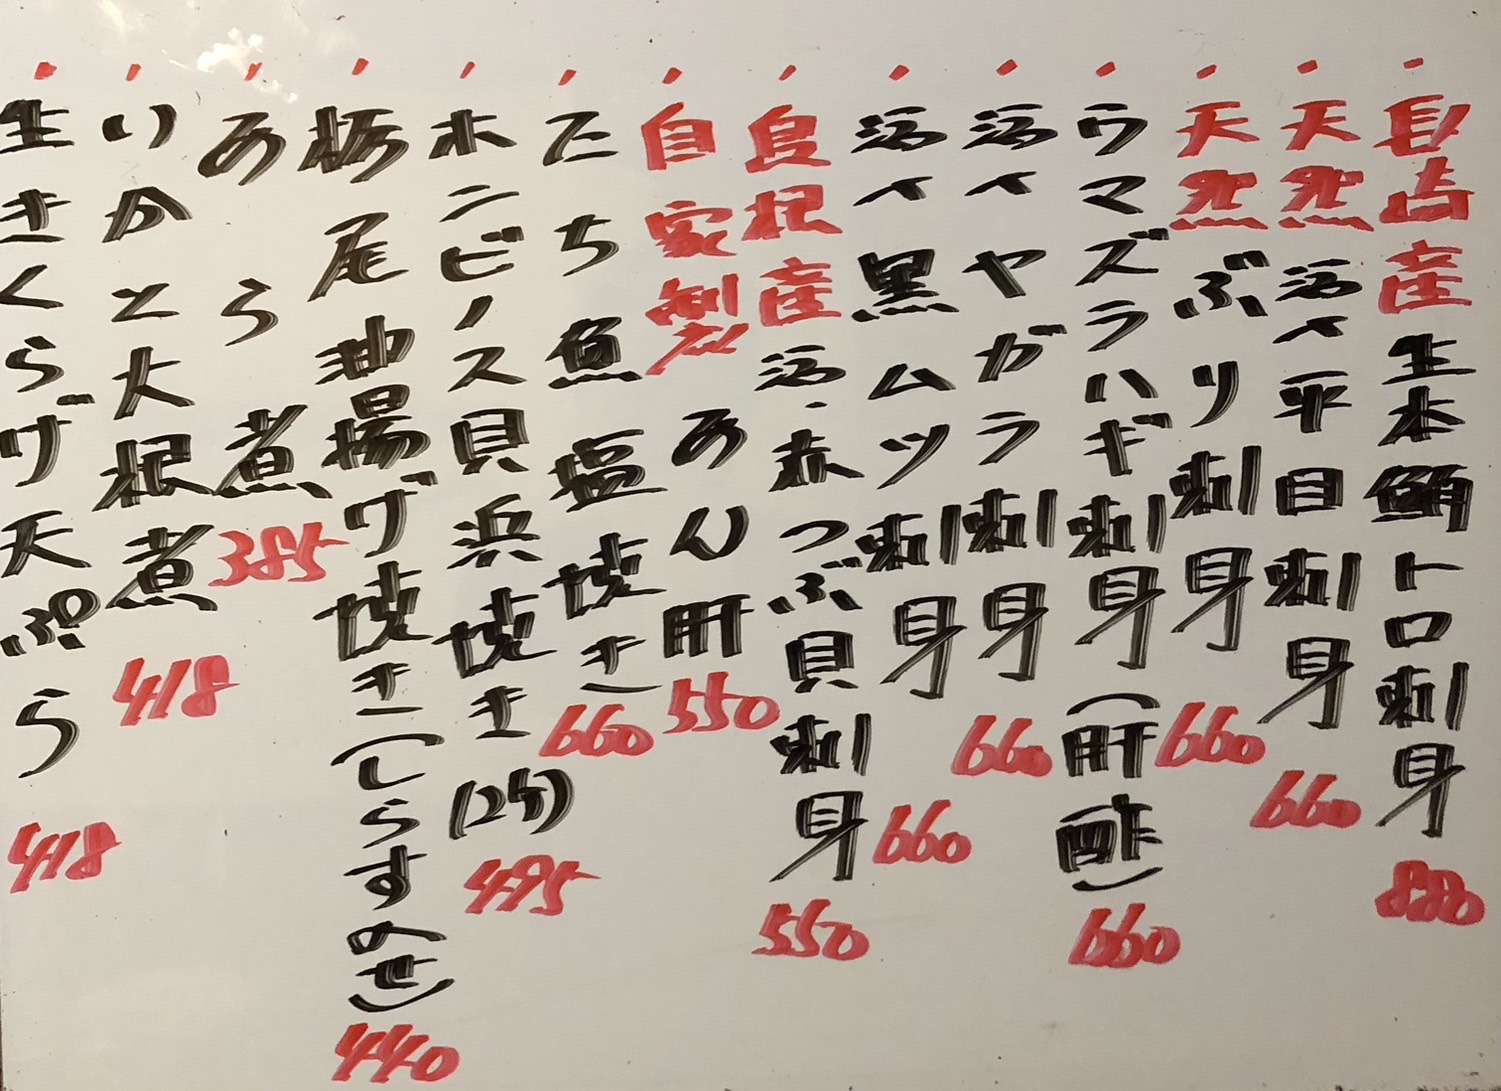 長崎産生本鮪トロ刺身 880
天然活〆平目刺身 660
天然ぶり刺身 660
ウマズラハギ刺身(肝酢) 660
活〆ヤガラ刺身 660
活〆黒ムツ刺身 660
島根産活赤つぶ貝刺身 550
自家製あん肝 550
たち魚塩焼き 660
ホンビノス貝浜焼き(2ケ) 495
栃尾油揚げ焼き(しらすのせ) 440
あら煮 385
いかと大根煮 418
生きくらげ天ぷら 418